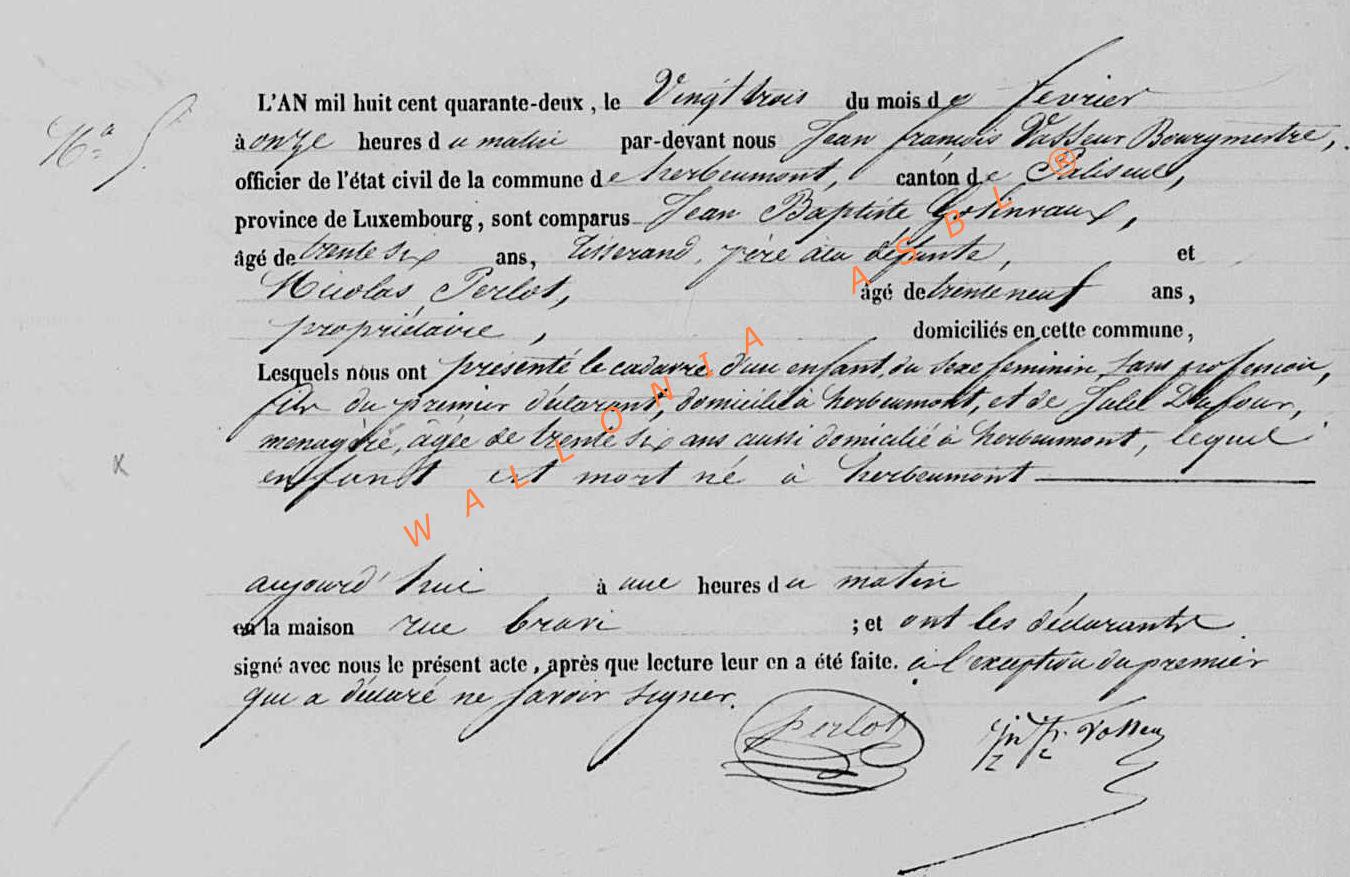 Nº 5.
L'AN mil huit cent quarante-deux, le Vingt trois du mois de fevrier
à onze heures du matin par-devant nous Jean françois Vasseur Bourgmestre,
officier de l'état civil de la commune de herbeumont, canton de Paliseul,
province de Luxembourg, sont comparus Jean Baptiste Gofinvaux,
âgé de trente six ans, tisserand, père à la défunte, et
Nicolas Perlot, âgé de trente neuf ans,
propriétaire, domiciliés en cette commune,
Lesquels nous ont présenté le cadavre d'un enfant du sexe feminin, sans profession,
du premier déclarant, domicilié à herbeumont, et de Dufour,
menagère, âgée de trente six ans aussi domicilié à herbeumont, lequel
enfant est mort né à herbeumont
aujourd'hui à une heures du matin
en la maison rue ; et ont les déclarants
signé avec nous le présent acte, après que lecture leur en a été faite. à l'exception du premier
qui a déclaré ne savoir signer.
perlot Vasseur
WALLONIA ASBL ®